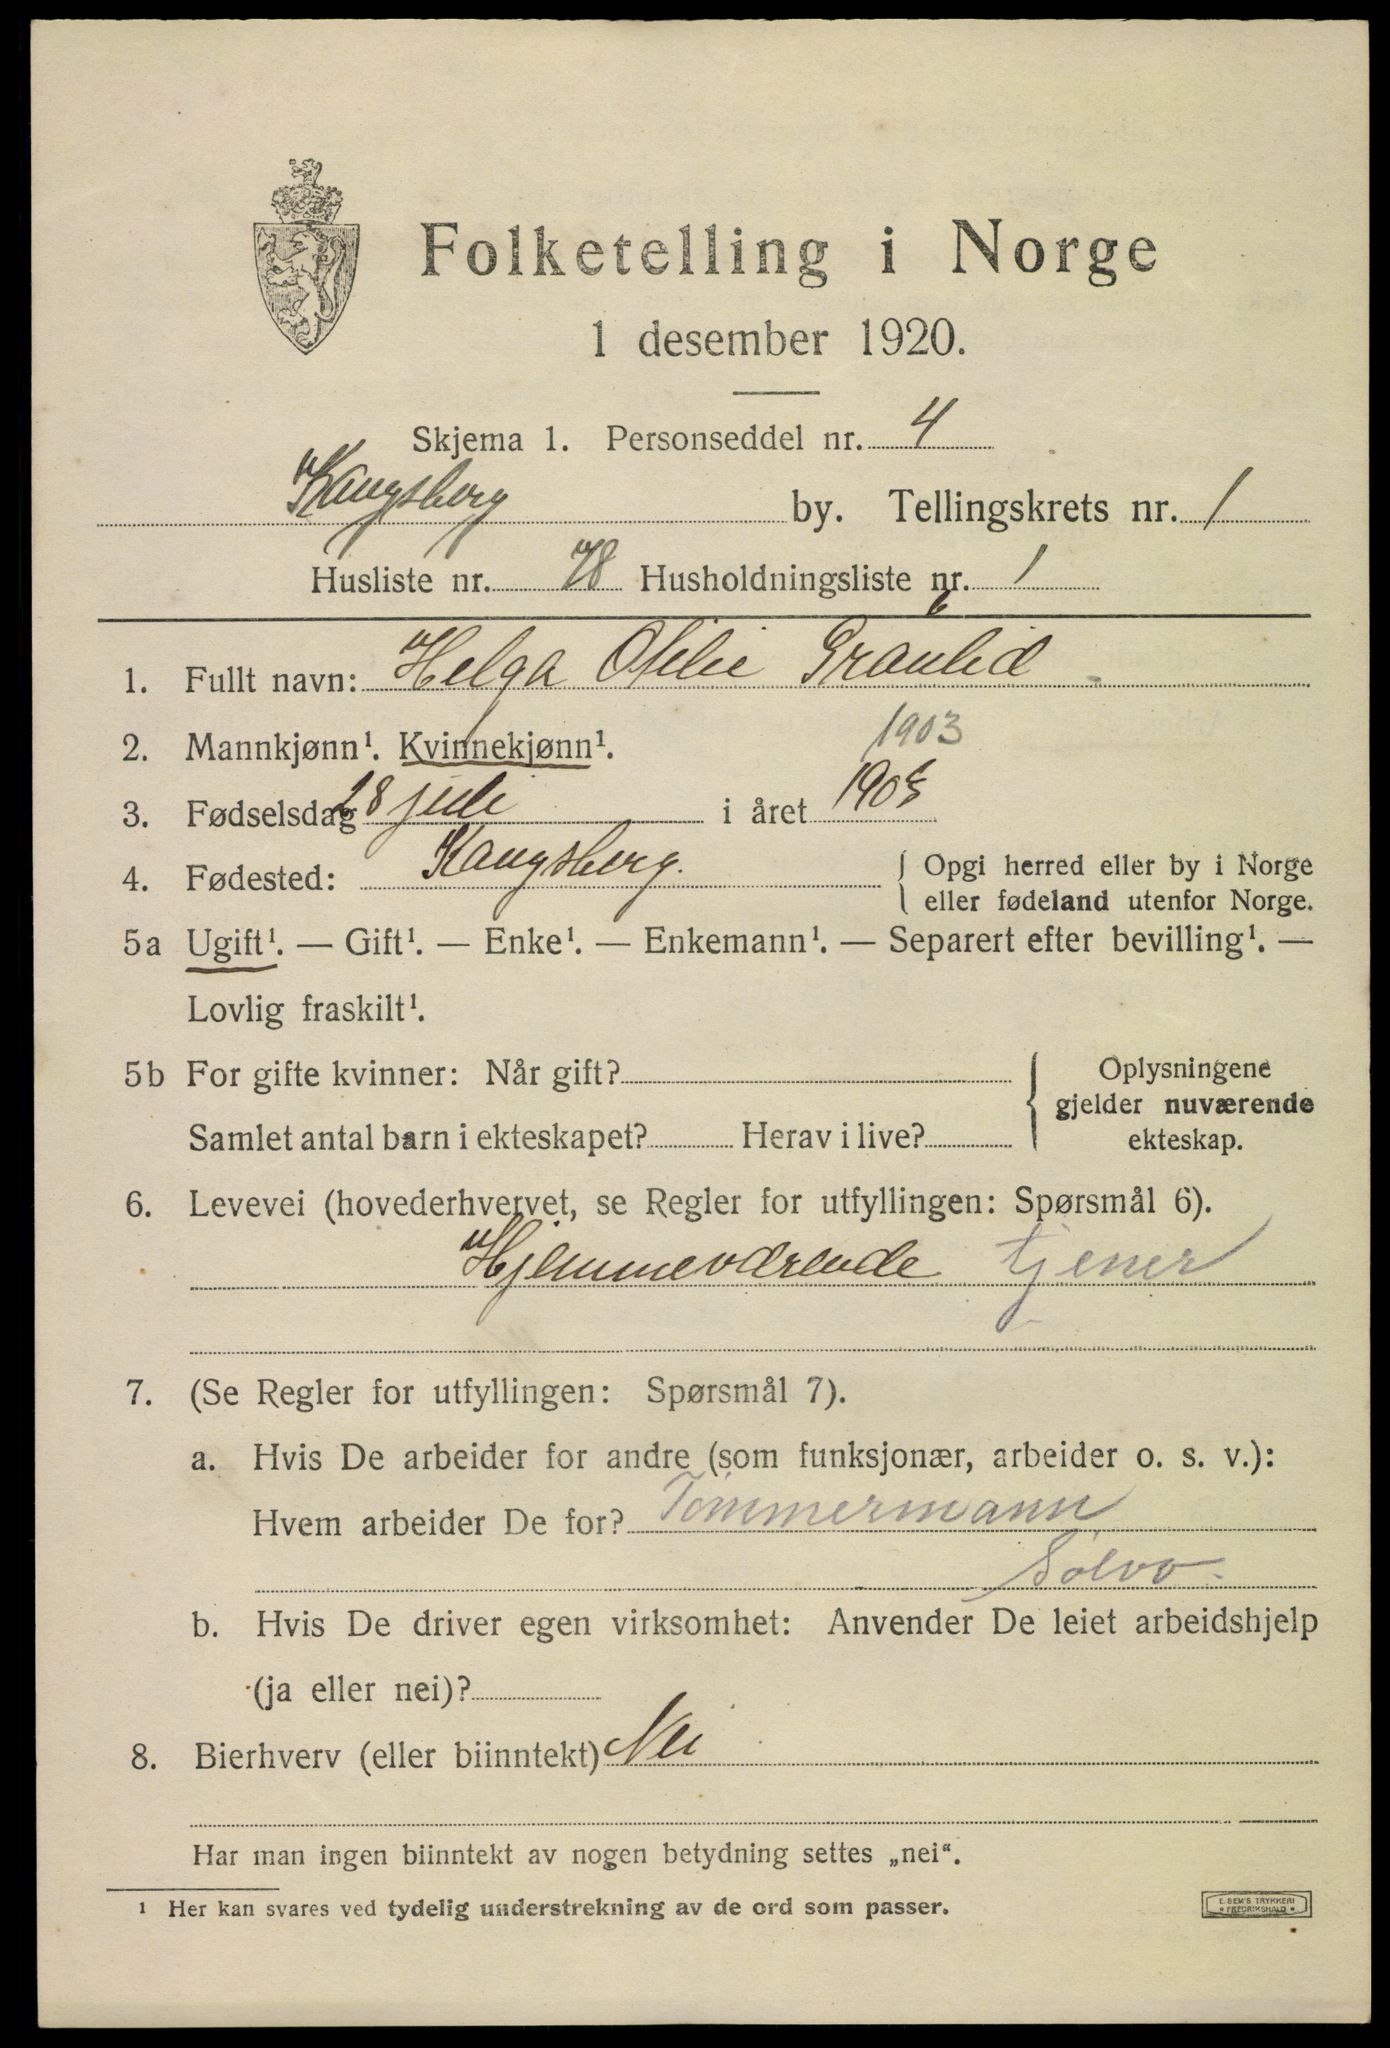 Folketelling i Norge
1 desember 1920.
Skjema 1. Personseddel nr. 4
Kongsberg by. Tellingskrets nr. 1
Husliste nr. 78 Husholdningsliste nr. 1
1. Fullt navn: Helga Otilie Grånlid
2. Mannkjønn¹. Kvinnekjønn¹.
1903
3. Fødselsdag 28 juli i året 1903
4. Fødested: Kongsberg. { Opgi herred eller by i Norge
eller fødeland utenfor Norge.
5a Ugift¹. — Gift¹. — Enke¹. — Enkemann¹. — Separert efter bevilling¹. —
Lovlig fraskilt¹.
5b For gifte kvinner: Når gift? { Oplysningene
gjelder nuværende
Samlet antal barn i ekteskapet? Herav i live? ekteskap.
6. Levevei (hovederhvervet, se Regler for utfyllingen: Spørsmål 6).
Hjemmeværende tjener
7. (Se Regler for utfyllingen: Spørsmål 7).
a. Hvis De arbeider for andre (som funksjonær, arbeider o. s. v.):
Hvem arbeider De for? Tømmermann
Sølvv.
b. Hvis De driver egen virksomhet: Anvender De leiet arbeidshjelp
(ja eller nei)?
8. Bierhverv (eller biinntekt) Nei
Har man ingen biinntekt av nogen betydning settes „nei“.
¹ Her kan svares ved tydelig understrekning av de ord som passer.
E. SEM'S TRYKKERI
FREDRIKSHALD